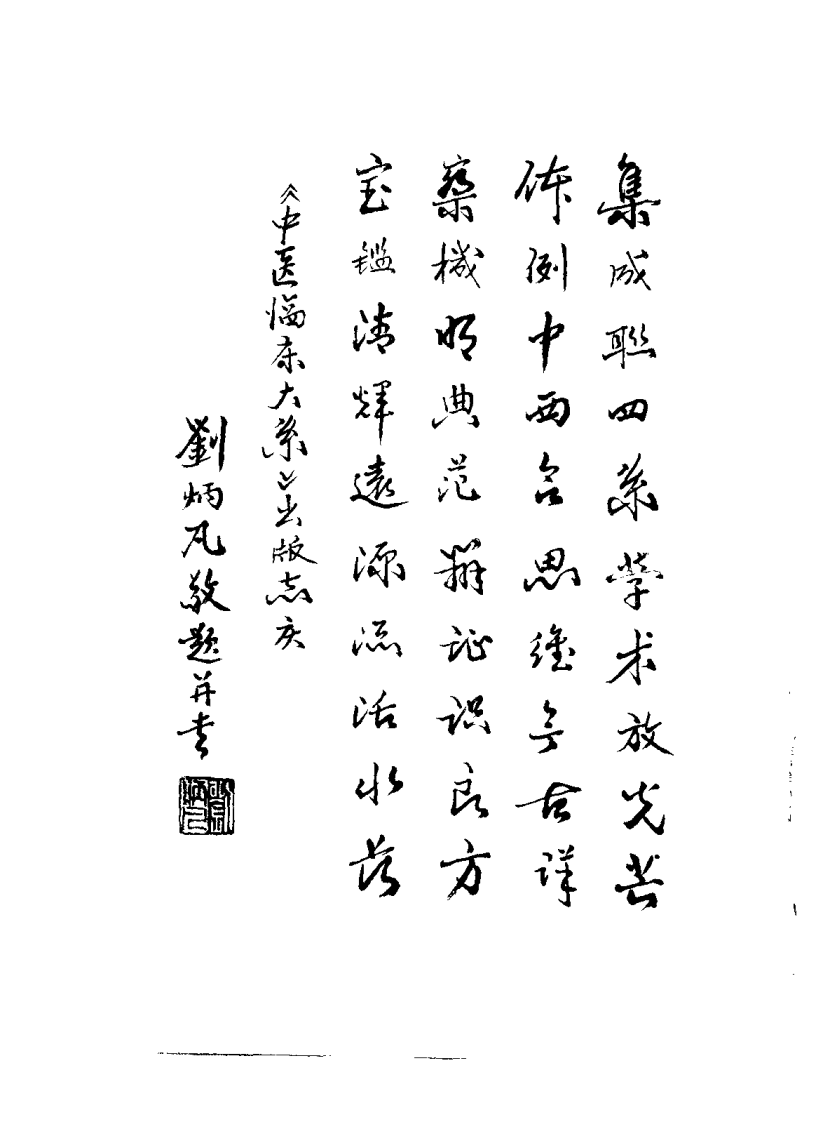 集成聯四系学术放光芒
体例中西合思维今古详
察機明典范辨证识良方
宝鑑清辉遠源流活水長
《中医临床大系》出版志庆
劉炳凡敬题并书